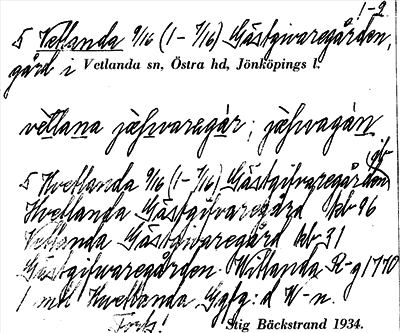 1-2.
5 Vetlanda 9/16 (1 - 7/16) Gästgivaregården,
gård i Vetlanda sn, Östra hd, Jönköpings l.
vètlana jæhvaregár; jæhvagán
5 Hvetlanda 9/16 (1 - 7/16) Gästgifvaregården
Hvetlanda Gästgifvaregård kb 96
Vetlanda Gästgifvaregård kb 31
Gästgifwaregården Witlanda R-g 1770
1 mtl Hwetlanda Ggfg:d W-n.
Torp!
Stig Bäckstrand 1934.